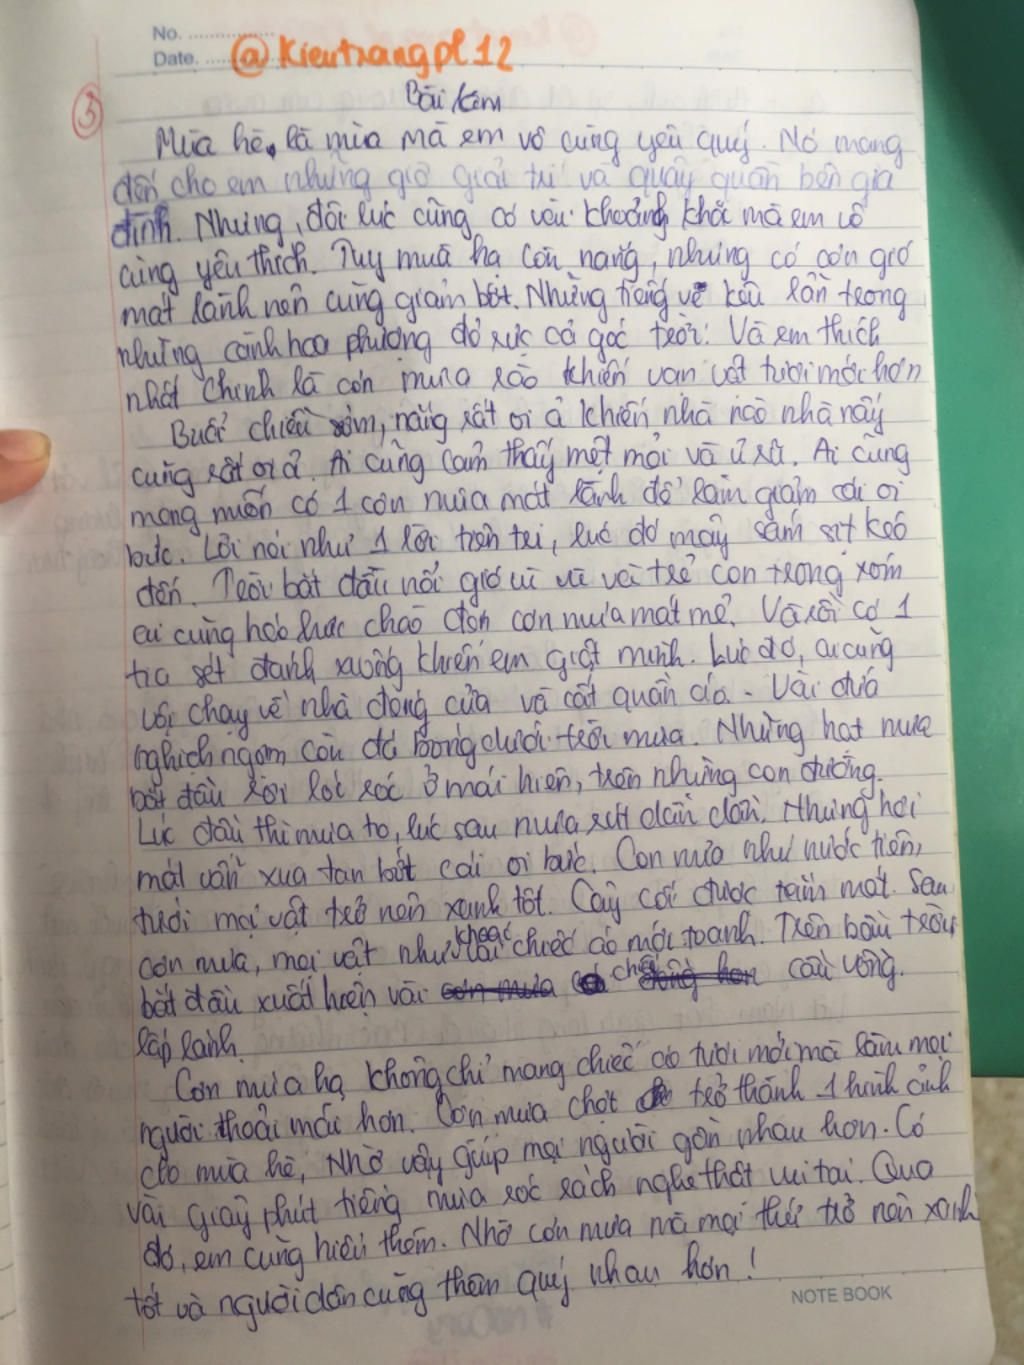 No. ...............
Date. ...... @Kieutrangpl12
Bài làm
3
Mùa hè, là mùa mà em vô cùng yêu quý. Nó mang
đến cho em những giờ giải trí và quây quần bên gia
đình. Nhưng, đôi lúc cũng có vài khoảnh khắc mà em vô
cùng yêu thích. Tuy mùa hạ còn nắng, nhưng có cơn gió
mát lành nên cũng giảm bớt. Những tiếng ve kêu lẫn trong
những cành hoa phượng đỏ rực cả góc trời. Và em thích
nhất chính là cơn mưa rào khiến vạn vật tươi mới hơn
Buổi chiều sớm, nắng rất oi ả khiến nhà nào nhà nấy
cũng rất oi ả. Ai cũng cảm thấy mệt mỏi và ủ rũ. Ai cũng
mong muốn có 1 cơn mưa mát lành để làm giảm cái oi
bức. Lời nói như 1 lời tiên tri, lúc đó mây sầm sịt kéo
đến. Trời bắt đầu nổi gió ù ù và trẻ con trong xóm
ai cũng háo hức chào đón cơn mưa mát mẻ. Và rồi có 1
tia sét đánh xuống khiến em giật mình. Lúc đó, ai cũng
vội chạy về nhà đóng cửa và cất quần áo. Vài đứa
nghịch ngợm còn đá bóng dưới trời mưa. Những hạt mưa
bắt đầu rơi lốc róc ở mái hiên, trên những con đường.
Lúc đầu thì mưa to, lúc sau mưa rút dần dần. Nhưng hơi
mát vẫn xua tan bớt cái oi bức. Cơn mưa như nước tiên,
tưới mọi vật trở nên xanh tốt. Cây cối được tắm mát. Sau
cơn mưa, mọi vật như khoác chiếc áo mới toanh. Trên bầu trời
bắt đầu xuất hiện vài chiếc cầu vồng.
lấp lánh.
Cơn mưa hạ không chỉ mang chiếc áo tươi mới mà làm mọi
người thoải mái hơn. Cơn mưa chợt trở thành 1 hình ảnh
cho mùa hè, Nhờ vậy giúp mọi người gần nhau hơn. Có
vài giây phút tiếng mưa róc rách nghe thật vui tai. Qua
đó, em cũng hiểu thêm. Nhờ cơn mưa mà mọi thứ trở nên xanh
tốt và người dân cũng thêm quý nhau hơn!
NOTE BOOK